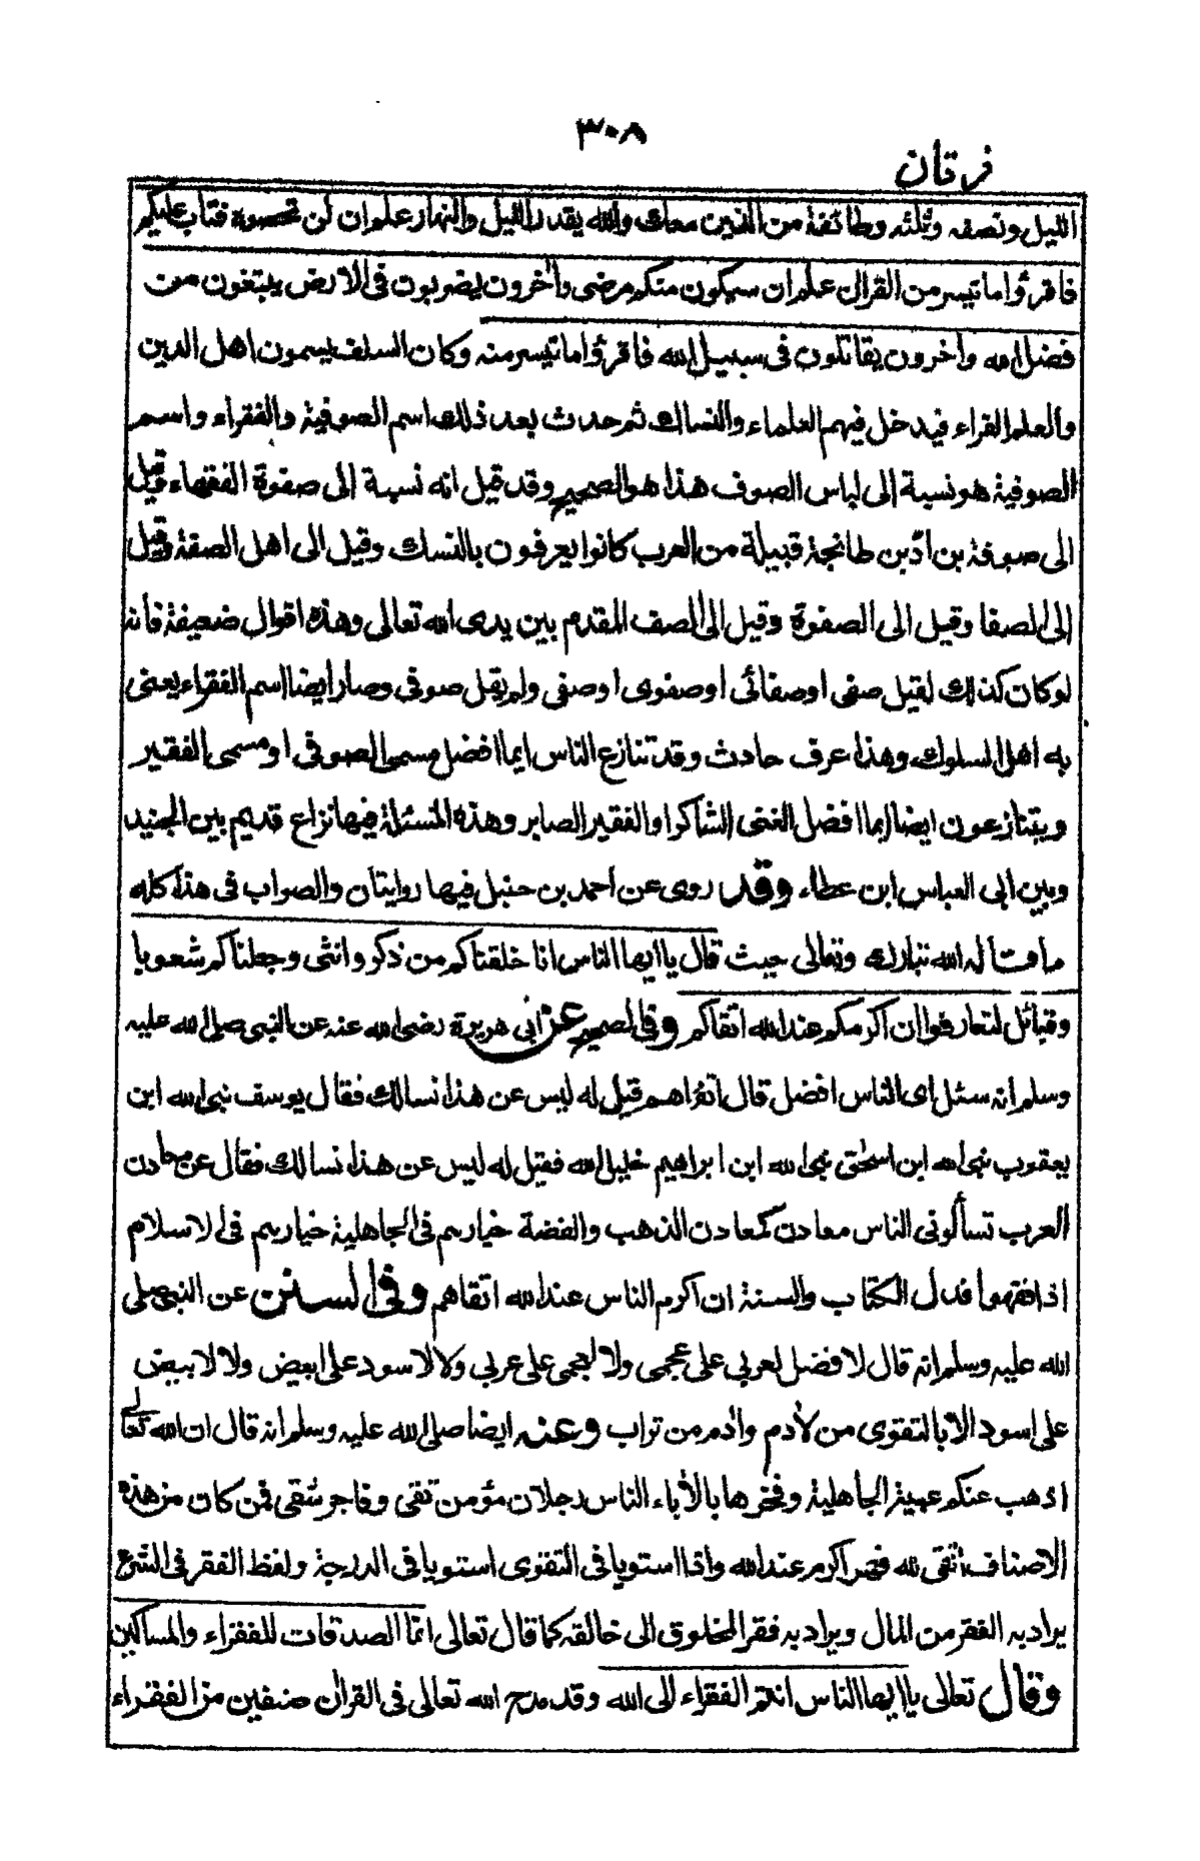 ٣٠٨
فرقان
الليل ونصفه وثلثه وطائفة من الذين معك والله يقدر الليل والنهار علم ان لن تحصوه فتاب عليكم
فاقرؤا ما تيسر من القرآن علم ان سيكون منكم مرضى وآخرون يضربون فى الارض يبتغون من
فضل الله وآخرون يقاتلون فى سبيل الله فاقرؤا ما تيسر منه وكان السلف يسمون اهل الدين
والعلم القراء فيدخل فيهم العلماء والنساك ثم حدث بعد ذلك اسم الصوفية والفقراء واسم
الصوفية هو نسبة الى لباس الصوف هذا هو الصحيح وقد قيل انه نسبة الى صفوة الفقهاء وقيل
الى صوفة بن ادّ بن طانجة قبيلة من العرب كانوا يعرفون بالنسك وقيل الى اهل الصفة وقيل
الى الصفا وقيل الى الصفوة وقيل الى الصف المقدم بين يدى الله تعالى وهذه اقوال ضعيفة فانه
لو كان كذلك لقيل صفى او صفائى او صفوى او صفى ولم يقل صوفى وصار ايضا اسم الفقراء يعنى
به اهل السلوك وهذا عرف حادث وقد تنازع الناس ايما افضل مسمى الصوفى او مسمى الفقير
ويتنازعون ايضا ايما افضل الغنى الشاكر او الفقير الصابر وهذه المسئلة فيها نزاع قديم بين الجنيد
وبين ابى العباس ابن عطاء وقد روى عن احمد بن حنبل فيها روايتان والصواب فى هذا كله
ما قاله الله تبارك وتعالى حيث قال يا ايها الناس انا خلقناكم من ذكر وانثى وجعلناكم شعوبا
وقبائل لتعارفوا ان اكرمكم عند الله اتقاكم وفى الصحيح عن أبى هريرة رضى الله عنه عن النبى صلى الله عليه
وسلم انه سئل اى الناس افضل قال اتقاهم قيل له ليس عن هذا نسالك فقال يوسف نبى الله ابن
يعقوب نبى الله ابن اسحٰق نبى الله ابن ابراهيم خليل الله فقيل له ليس عن هذا نسالك فقال عن معادن
العرب تسألونى الناس معادن كمعادن الذهب والفضة خيارهم فى الجاهلية خيارهم فى الاسلام
اذا فقهوا فدل الكتاب والسنة ان اكرم الناس عند الله اتقاهم وفى السنن عن النبى صلى
الله عليه وسلم انه قال لا فضل لعربى على عجمى ولا لعجمى على عربى ولا لاسود على ابيض ولا لابيض
على اسود الا بالتقوى من لآدم وآدم من تراب وعنه ايضا صلى الله عليه وسلم انه قال ان الله تعالى
اذهب عنكم عبية الجاهلية وفخرها بالأباء الناس رجلان مؤمن تقى وفاجر شقى فمن كان من هذه
الاصناف اتقى لله فهو اكرم عند الله واذا استويا فى التقوى استويا فى الدرجة ولفظ الفقر فى الشرع
يراد به الفقر من المال ويراد به فقر المخلوق الى خالقه كما قال تعالى انما الصدقات للفقراء والمساكين
وقال تعالى يا ايها الناس انتم الفقراء الى الله وقد مدح الله تعالى فى القرآن صنفين من الفقراء